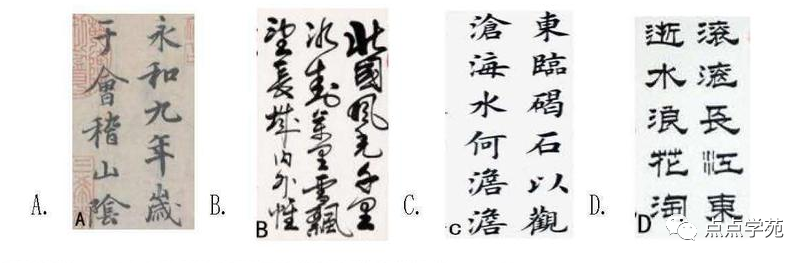 A.
永和九年歲
于會稽山陰
A
B.
北國風光千里
冰封萬里雪飄
望長城内外惟
B
C.
東臨碣石以觀
滄海水何澹澹
C
D.
滾滾長江東
逝水浪花淘
D
点点学苑